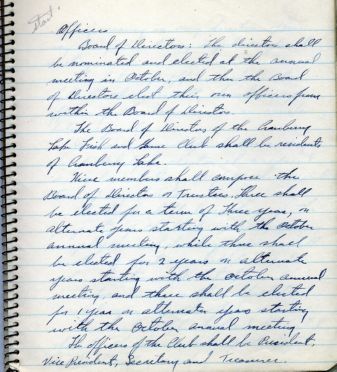 start.
Officers
Board of Directors: The directors shall
be nominated and elected at the annual
meeting in October, and then the Board
of Directors elect their own officers from
within the Board of Directors.
The Board of Directors of the Cranberry
Lake Fish and Game Club shall be residents
of Cranberry Lake.
Nine members shall compose the
Board of Directors or Trustees. Three shall
be elected for a term of three years, in
alternate years starting with the October
annual meeting, while three shall
be elected for 2 years in alternate
years starting with the October annual
meeting, and three shall be elected
for 1 year in alternate years starting
with the October annual meeting
The officers of the Club shall be President,
Vice President, Secretary and Treasurer.